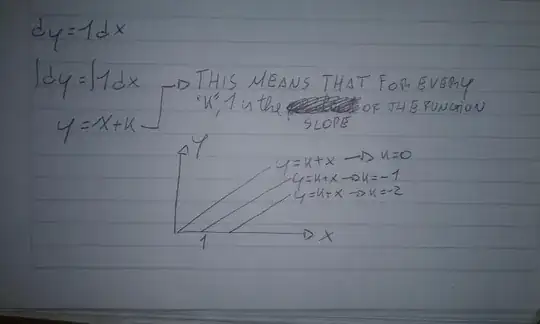 dy=1dx
∫dy=∫1dx
y=x+k → THIS MEANS THAT FOR EVERY
"k", 1 is the OF THE FUNCTION
SLOPE
y
y=k+x → k=0
y=k+x → k=-1
y=k+x → k=-2
1
x